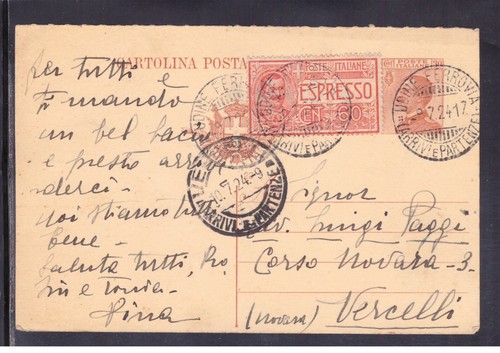 CARTOLINA POSTA
POSTE ITALIANE
ESPRESSO
CEN. 60
UDINE FERROVIA
ARRIVI E PARTENZE
UDINE FERROVIA
7.24.17
ARRIVI E PARTENZE
7.24-9
ARRIVI E PARTENZE
per tutti e
ti mando
un bel bacio
e presto arri
derci.
noi stiamo
bene.
Saluta tutti,
e Tonia.
Nina
Signor
Luigi Paggi
Corso Novara - 3 -
Vercelli
(Novara)